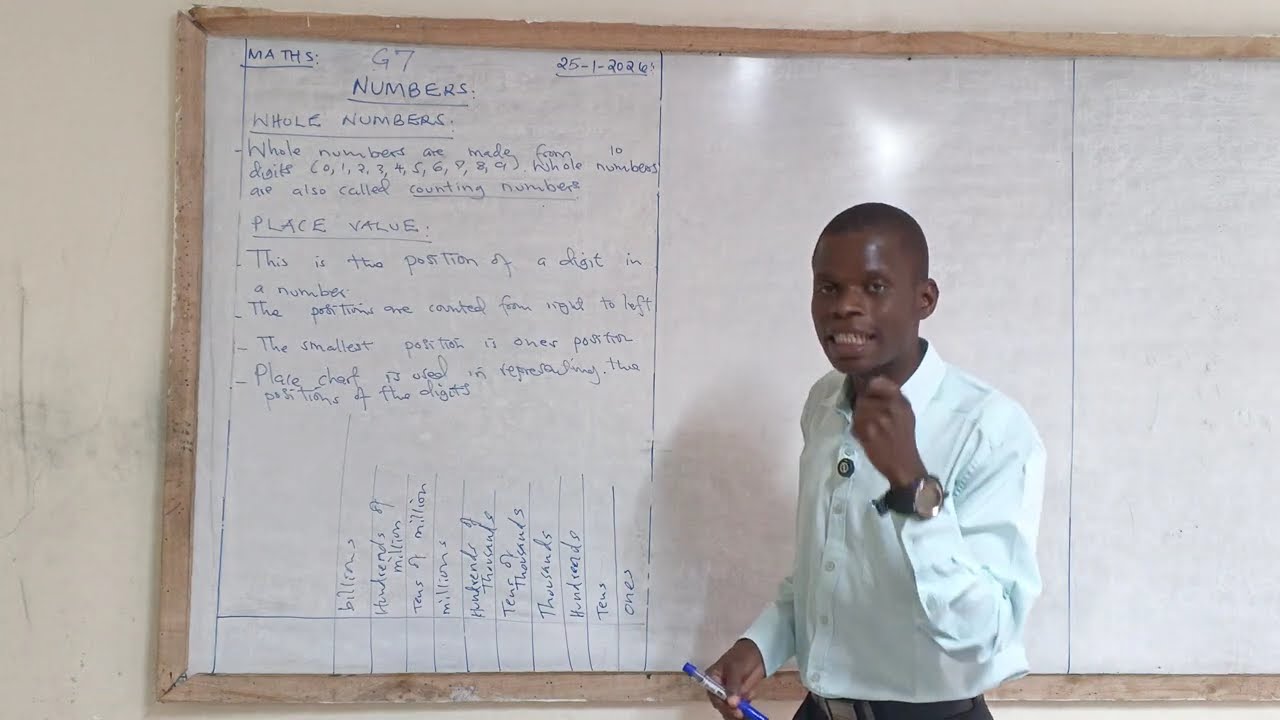 MATHS: G7 25-1-2026:
NUMBERS:
WHOLE NUMBERS:
- Whole numbers are made from 10
digits (0, 1, 2, 3, 4, 5, 6, 7, 8, 9). Whole numbers
are also called counting numbers
PLACE VALUE:
- This is the position of a digit in
a number.
- The positions are counted from right to left
- The smallest position is ones position
- Place chart is used in representing the
positions of the digits
billions
Hundreds of
million
Tens of million
millions
Hundreds of
Thousands
Tens of
Thousands
Thousands
Hundreds
Tens
ones